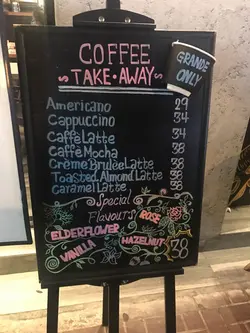 COFFEE
TAKE•AWAY
GRANDE
ONLY
Americano 29
Cappuccino 34
Caffe Latte 34
Caffe Mocha 38
Creme Brulee Latte 38
Toasted Almond Latte 38
Caramel Latte 38
Special
Flavours
ROSE
ELDERFLOWER
VANILLA
HAZELNUT
38